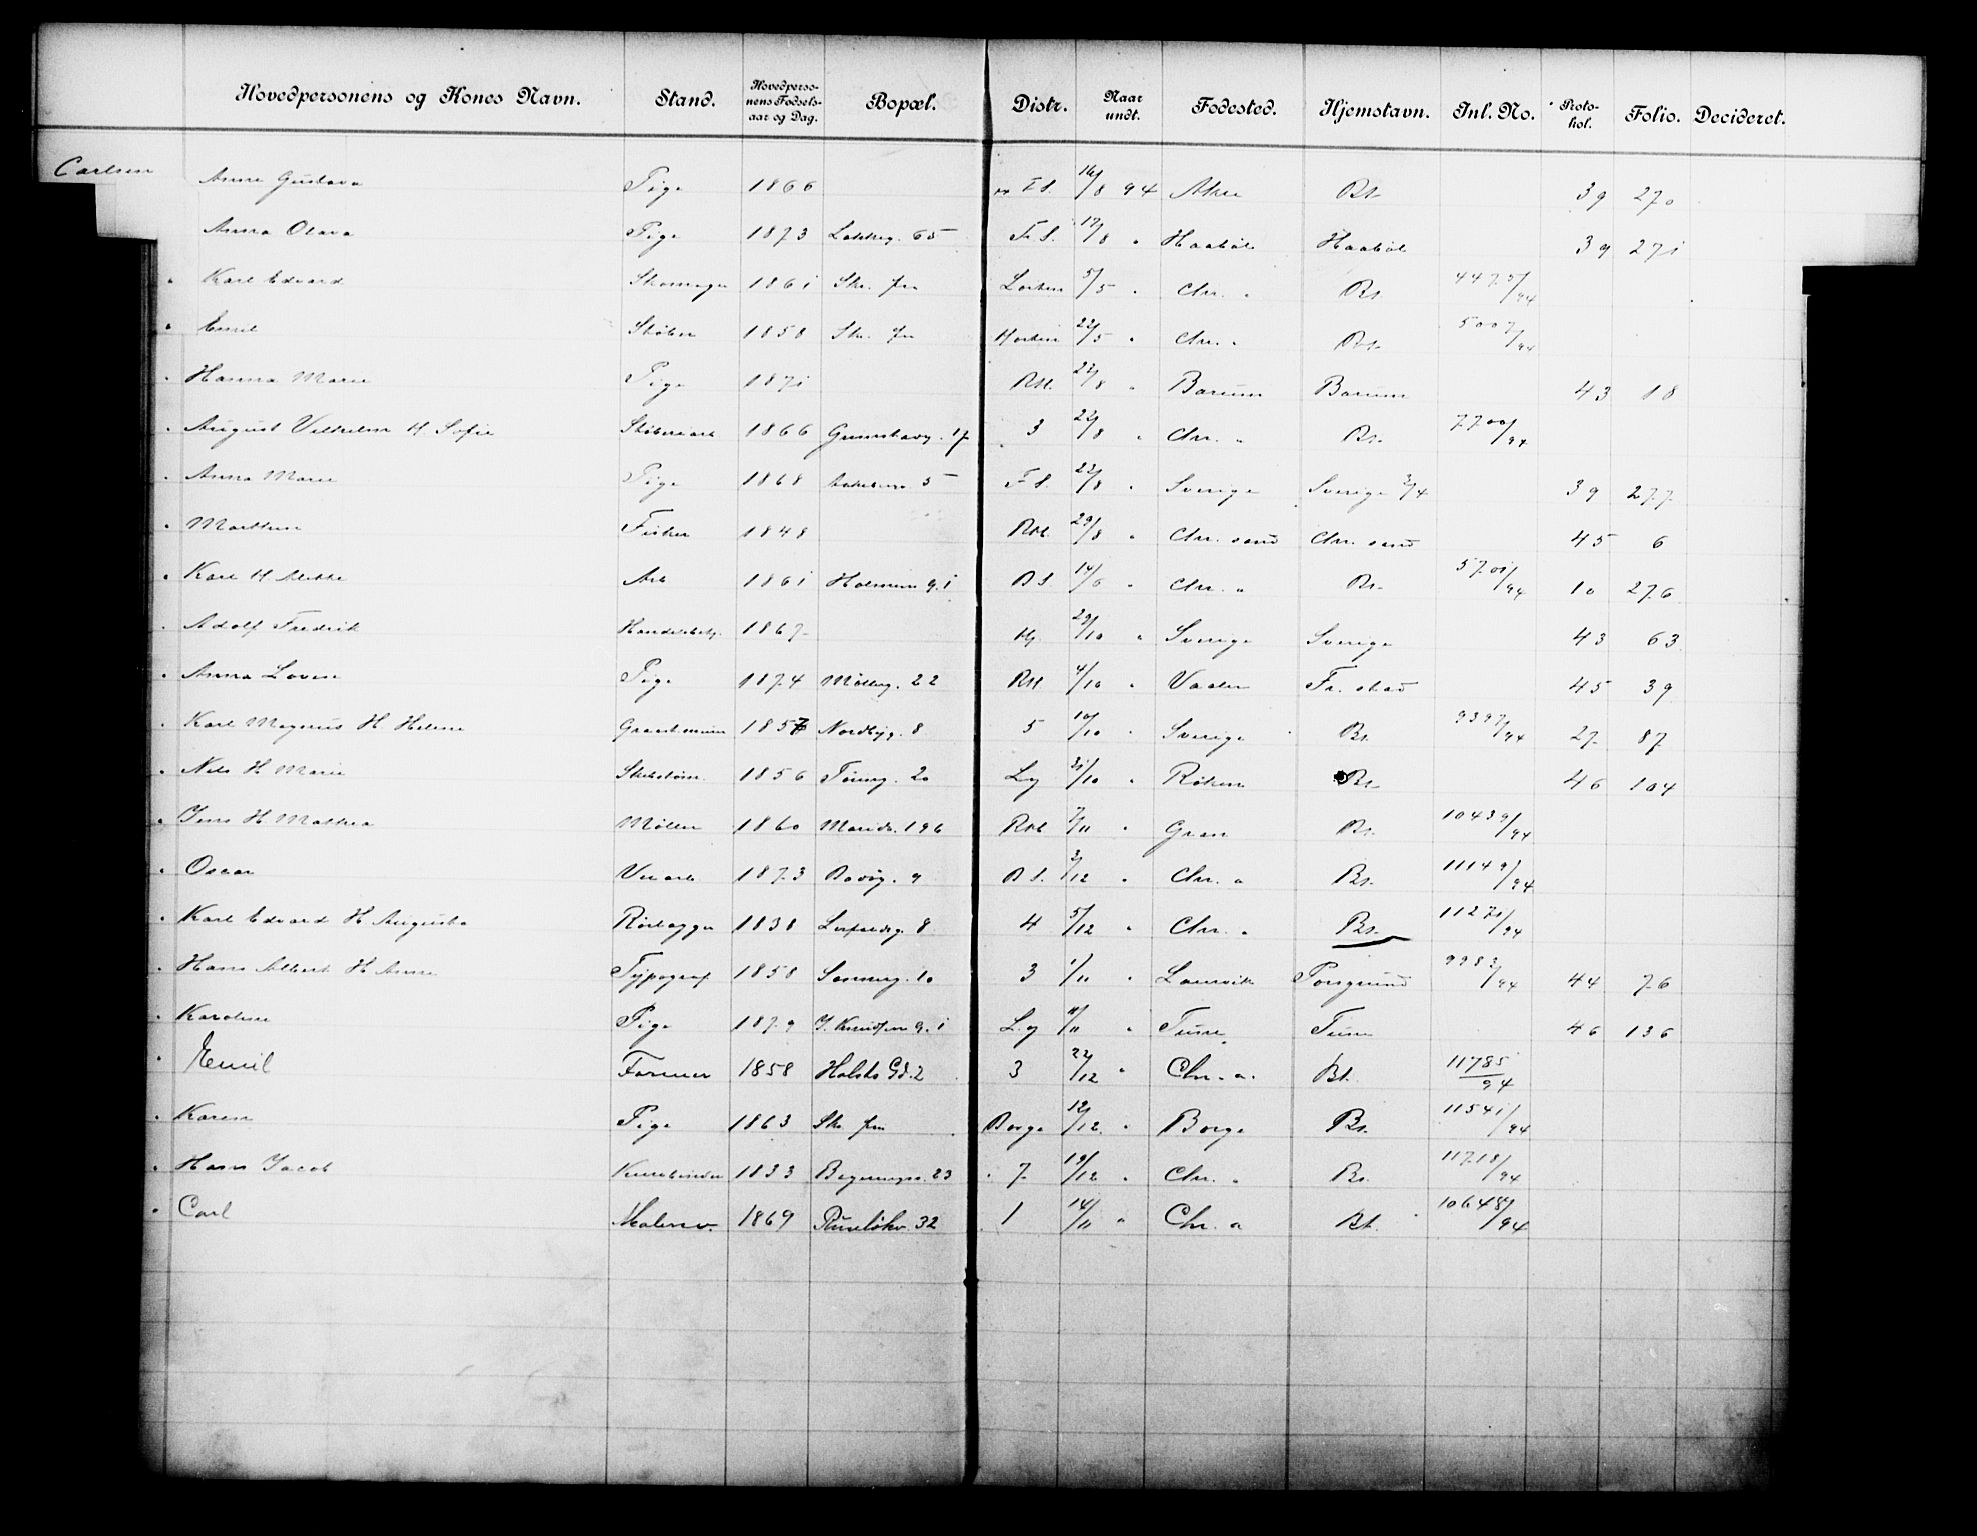 Hovedpersonens og Kones Navn. Stand. Hovedperso-nens Fødsels-aar og Dag. Bopæl. Distr. Naar undt. Fødested. Hjemstavn. Inl. No. Proto-kol. Folio. Decideret.
Carlsen Anne Gustava Pige 1866 F S. 16/8 94 Aker Bt. 39 270
Anna Olava Pige 1873 Lakkeg. 65 F S. 17/8 " Haabøl Haabøl 39 271
" Karl Edvard Skomager 1861 Sk. fra 5/5 " Chr. a Bt. 4475/94
" Emil Støber 1858 Sk. fra Horten 22/5 " Chr. a Bt. 5007/94
" Hanna Marie Pige 1871 RH. 22/8 " Bærum Bærum 43 18
" August Vilhelm H Sofie Støberiarb 1866 17 3 22/8 " Chr. a Bt. 7700/94
" Anna Marie Pige 1868 5 F S. 22/8 " Sverige Sverige 39 277
" Marthin Fisker 1848 RH. 29/8 " Chr. sand Chr. sand 45 6
" Karl H Arb 1861 Holmens g. 1 B S. 14/6 " Chr. a Bt. 5701/94 10 276
" Adolf Fredrik Handelsbetj. 1867 29/10 " Sverige Sverige 43 63
" Anna Lovise Pige 1874 Møllerg. 22 RH 4/10 " Vaaler Fr. stad 45 39
" Karl Magnus H. Helene 1857 Nordbyg. 8 5 10/10 " Sverige Bt. 9397/94 27 87
" Nils H. Marie 1856 20 Lg 31/10 " Røken Bt. 46 104
" Jens H. Mathea Møller 1860 Marida. 196 RH. 7/11 " Gran Bt. 10439/94
" Oscar 1873 9 B S. 3/12 " Chr. a Bt. 11149/94
" Karl Edvard H Augusta Rørlægger 1838 8 4 5/12 " Chr. a Bt. 11271/94
" Hans Albert H. Anne Typograf 1858 10 3 1/11 " Laurvik Porsgrund 9982/94 44 76
" Karoline Pige 1879 J. Knudsens g. 1 L. g 11/11 " Tune Tune 46 136
" Emil Former 1858 Holsts Gd. 2 3 22/12 " Chr. a. Bt. 11785/94
" Karen Pige 1863 Sk. fra Borge 12/12 " Borge Bt. 11541/94
" Hans Jacob 1833 23 7 19/12 " Chr. a Bt. 11718/94
" Carl Malersv. 1869 Ruseløkv. 32 1 14/11 " Chr. a Bt. 10648/94